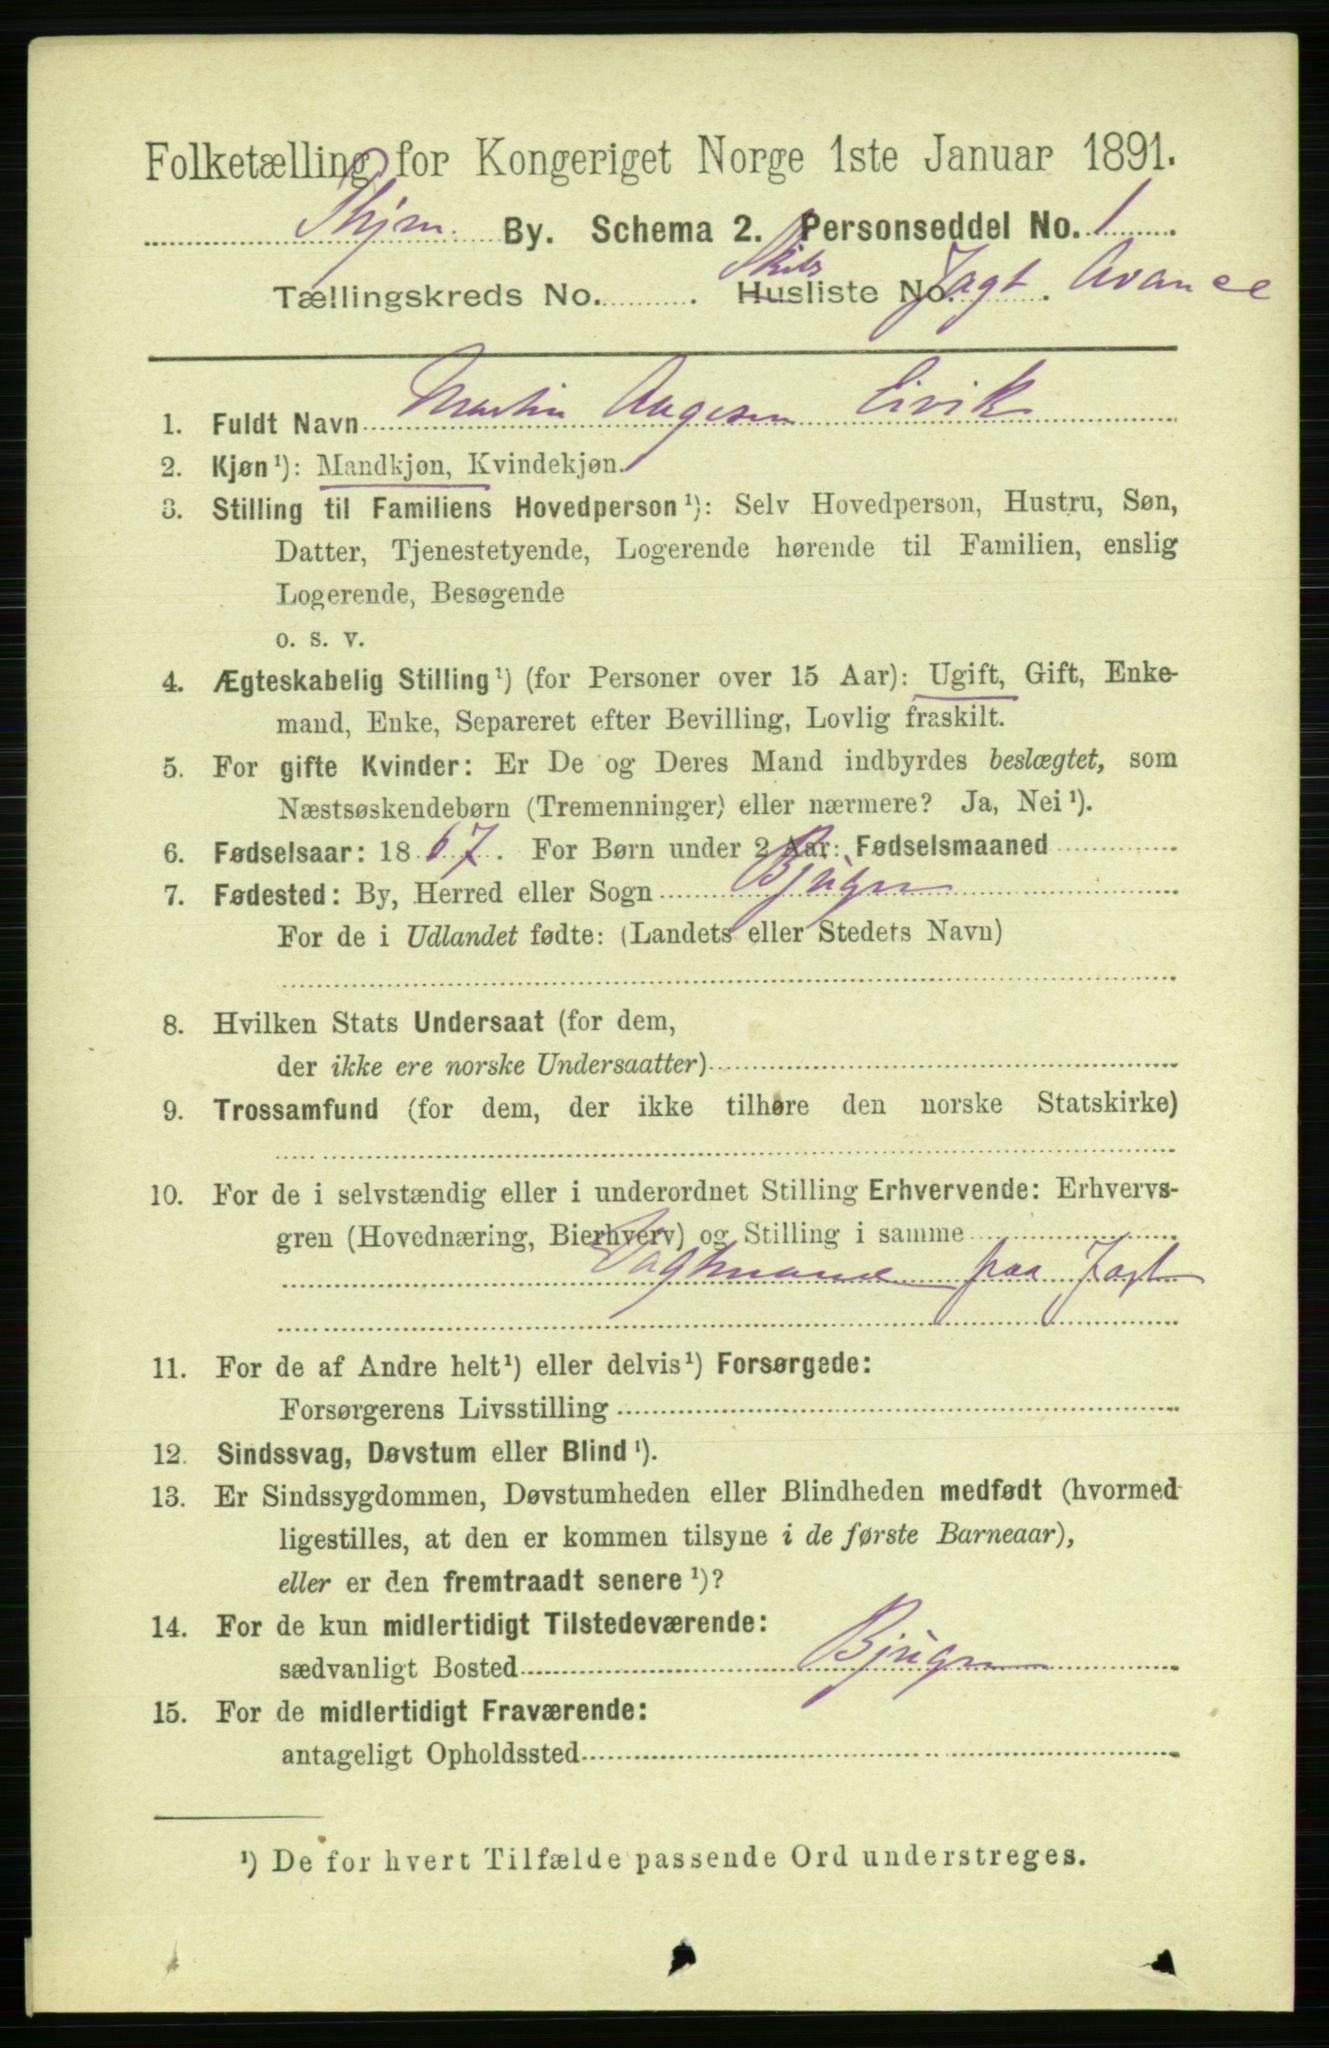 Folketælling for Kongeriget Norge 1ste Januar 1891.
Thjm. By. Schema 2. Personseddel No. 1.
Tællingskreds No. . Husliste No. . Skibs Jagt Avance
1. Fuldt Navn Martin Aagesen Eivik
2. Kjøn ¹): Mandkjøn, Kvindekjøn.
3. Stilling til Familiens Hovedperson ¹): Selv Hovedperson, Hustru, Søn,
Datter, Tjenestetyende, Logerende hørende til Familien, enslig
Logerende, Besøgende
o. s. v.
4. Ægteskabelig Stilling ¹) (for Personer over 15 Aar): Ugift, Gift, Enke-
mand, Enke, Separeret efter Bevilling, Lovlig fraskilt.
5. For gifte Kvinder: Er De og Deres Mand indbyrdes beslægtet, som
Næstsøskendebørn (Tremenninger) eller nærmere? Ja, Nei ¹).
6. Fødselsaar: 1867. For Børn under 2 Aar: Fødselsmaaned
7. Fødested: By, Herred eller Sogn Bjugn
For de i Udlandet fødte: (Landets eller Stedets Navn)
8. Hvilken Stats Undersaat (for dem,
der ikke ere norske Undersaatter)
9. Trossamfund (for dem, der ikke tilhøre den norske Statskirke)
10. For de i selvstændig eller i underordnet Stilling Erhvervende: Erhvervs-
gren (Hovednæring, Bierhverv) og Stilling i samme
Vagtmand paa Jagt
11. For de af Andre helt ¹) eller delvis ¹) Forsørgede:
Forsørgerens Livsstilling
12. Sindssvag, Døvstum eller Blind ¹).
13. Er Sindssygdommen, Døvstumheden eller Blindheden medfødt (hvormed
ligestilles, at den er kommen tilsyne i de første Barneaar),
eller er den fremtraadt senere ¹)?
14. For de kun midlertidigt Tilstedeværende:
sædvanligt Bosted Bjugn
15. For de midlertidigt Fraværende:
antageligt Opholdssted
¹) De for hvert Tilfælde passende Ord understreges.